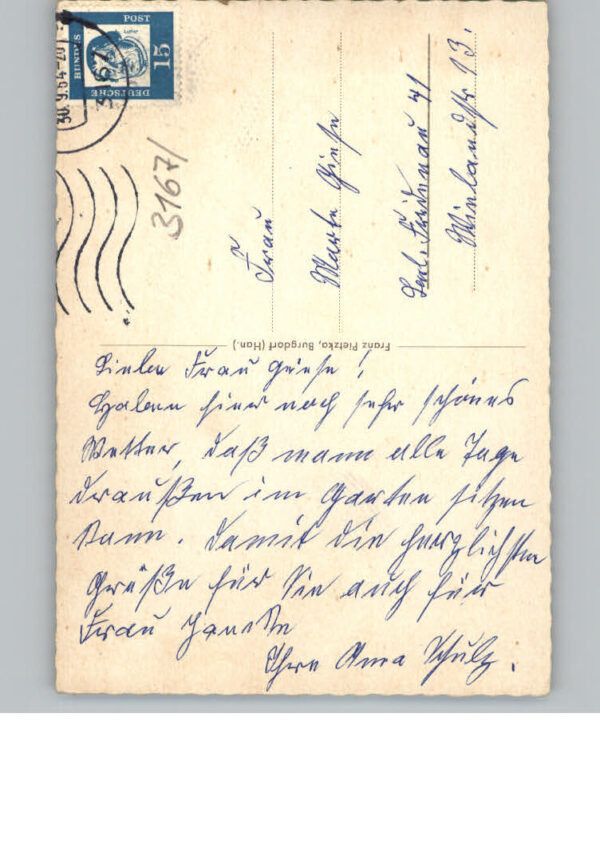 30.9.64-20
3167
DEUTSCHE
BUNDES
POST
15
3167/
Frau
Marta Giese
Berl. Fridenau 41
Wielandstr 13.
Franz Pietzko, Burgdorf (Han.)
Liebe Frau Giese!
Haben hier noch sehr schönes
Wetter, daß mann alle Tage
draußen im Garten sitzen
kann. Damit die herzlichsten
Grüße für Sie auch für
Frau
Ihre Anna Schulz.